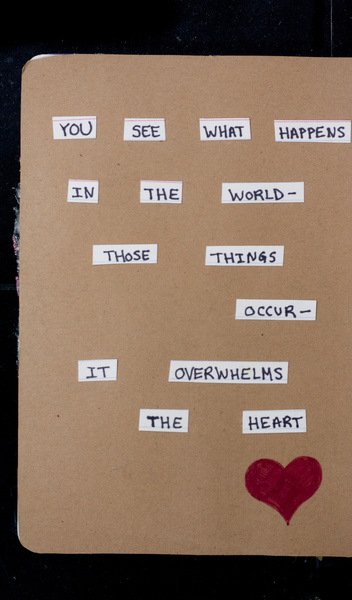 YOU SEE WHAT HAPPENS
IN THE WORLD-
THOSE THINGS
OCCUR-
IT OVERWHELMS
THE HEART